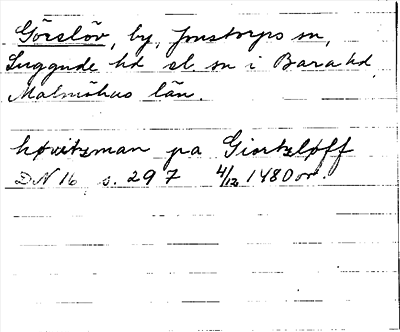 Görslöv, by, Jonstorps sn,
Luggude hd el sn i Bara hd,
Malmöhus län.
høvitzman pa Giortzløff
DN 16 s. 297 4/12 1480 or.